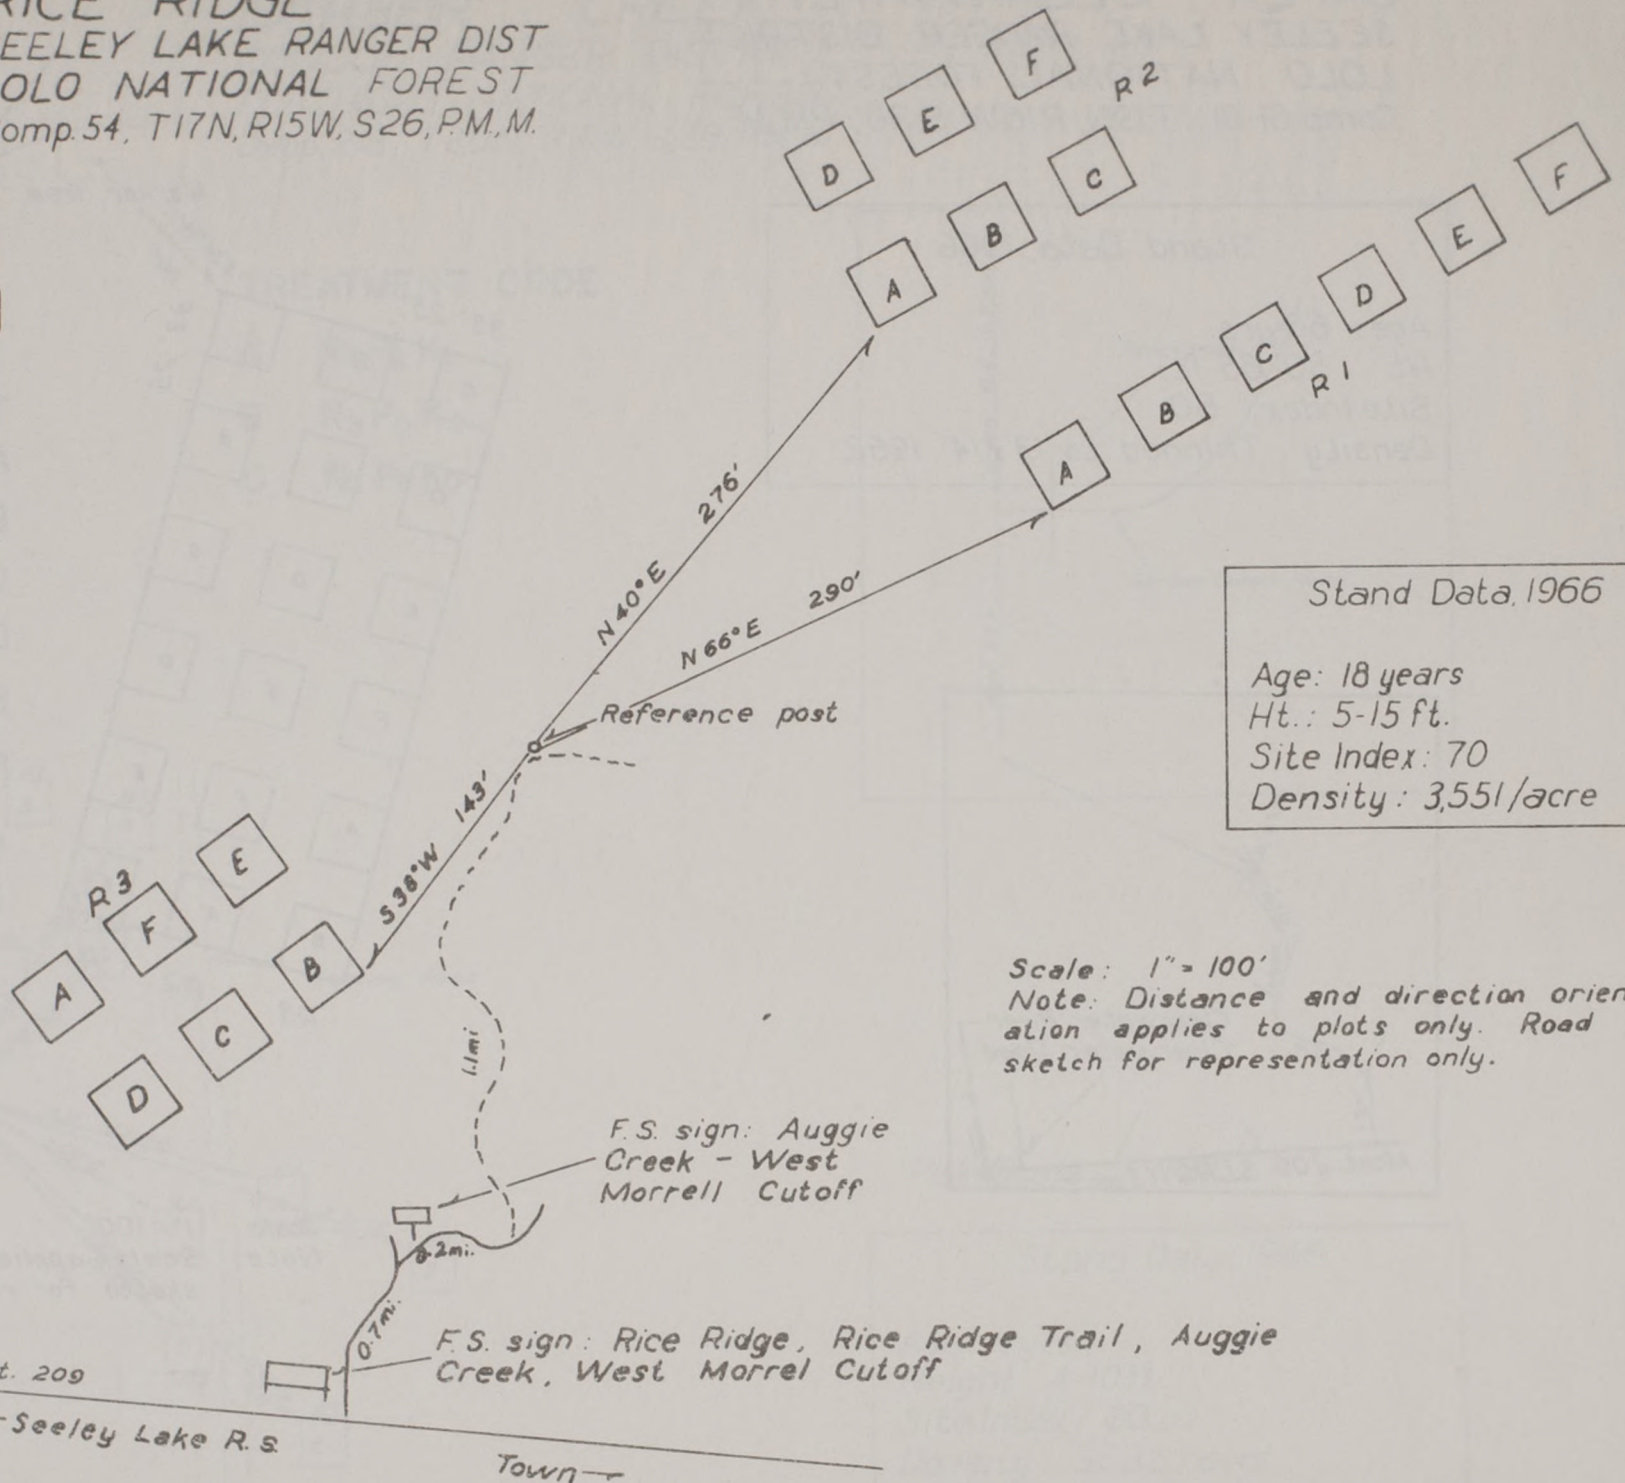 RICE RIDGE
EELEY LAKE RANGER DIST
OLO NATIONAL FOREST
omp. 54, T17N, R15W, S26, P.M., M.
F
E
D
R 2
C
B
A
F
E
D
C
B
A
R 1
276'
N 40° E
290'
N 66° E
Reference post
Stand Data, 1966
Age: 18 years
Ht.: 5-15 ft.
Site Index: 70
Density: 3,551/acre
143'
S 38° W
R 3
E
F
A
B
C
D
1.1 mi
Scale: 1" = 100'
Note: Distance and direction orien
ation applies to plots only. Road
sketch for representation only.
F.S. sign: Auggie
Creek - West
Morrell Cutoff
0.2 mi.
0.7 mi.
F.S. sign: Rice Ridge, Rice Ridge Trail, Auggie
Creek, West Morrel Cutoff
t. 209
Seeley Lake R.S.
Town